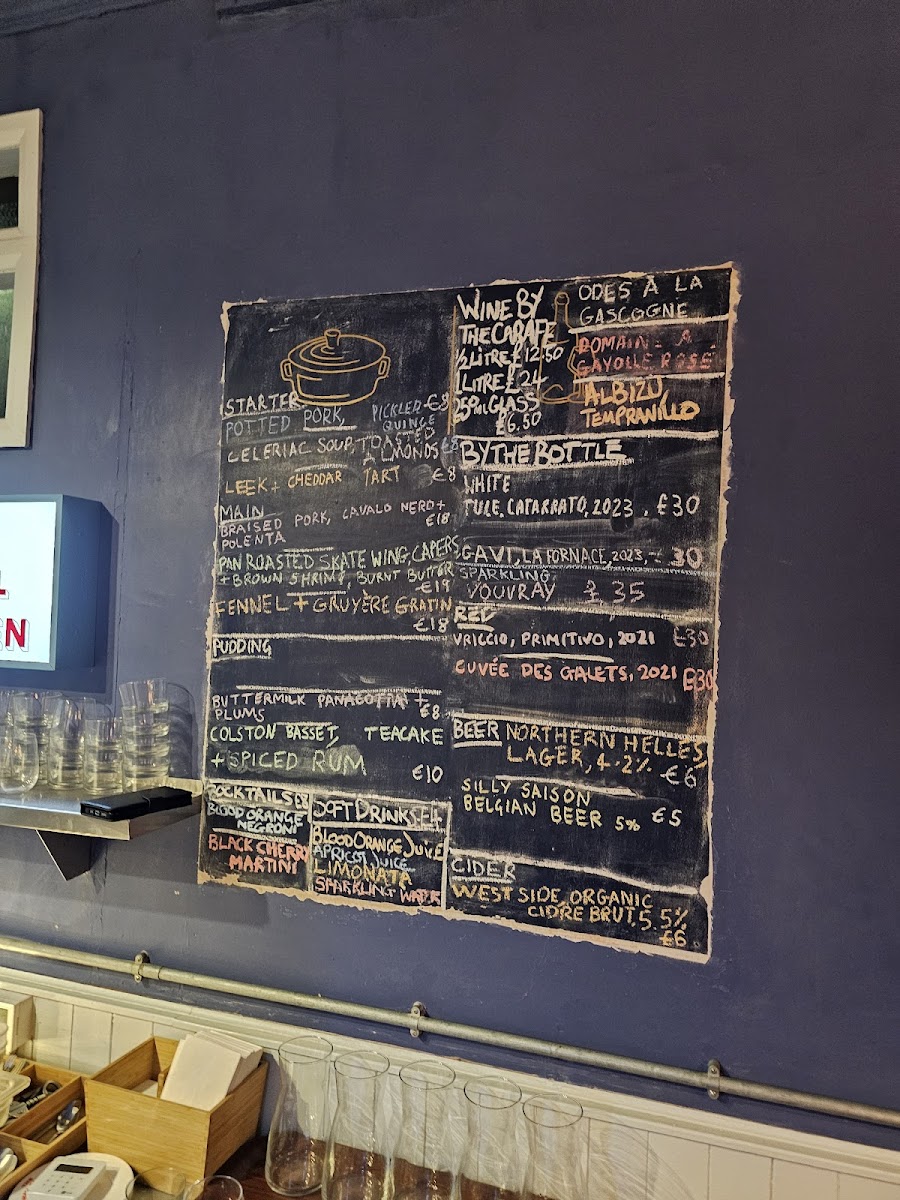 STARTER
POTTED PORK, PICKLED £8
QUINCE
CELERIAC SOUP, TOASTED
ALMONDS £8
LEEK + CHEDDAR TART £8
MAIN
BRAISED PORK, CAVALO NERO +
POLENTA £18
PAN ROASTED SKATE WING, CAPERS
+ BROWN SHRIMP, BURNT BUTTER
£19
FENNEL + GRUYÈRE GRATIN
£18
PUDDING
BUTTERMILK PANACOTTA +
PLUMS £8
COLSTON BASSET, TEACAKE
+ SPICED RUM £10
COCKTAILS £8
BLOOD ORANGE
NEGRONI
BLACK CHERRY
MARTINI
SOFT DRINKS £4
BLOOD ORANGE JUICE
APRICOT JUICE
LIMONATA
SPARKLING WATER
WINE BY
THE CARAFE
1/2 LITRE £12.50
1 LITRE £24
250ML GLASS
£6.50
ODES À LA
GASCOGNE
DOMAINE
GAYOLLE ROSE
ALBIZU
TEMPRANILLO
BY THE BOTTLE
WHITE
TULE, CATARRATO, 2023, £30
GAVI, LA FORNACE, 2023, 30
SPARKLING
VOUVRAY £35
RED
VRICCIO, PRIMITIVO, 2021 £30
CUVÉE DES GALETS, 2021 £30
BEER NORTHERN HELLES
LAGER, 4.2% £6
SILLY SAISON
BELGIAN BEER 5% £5
CIDER
WEST SIDE, ORGANIC
CIDRE BRUT, 5.5%
£6